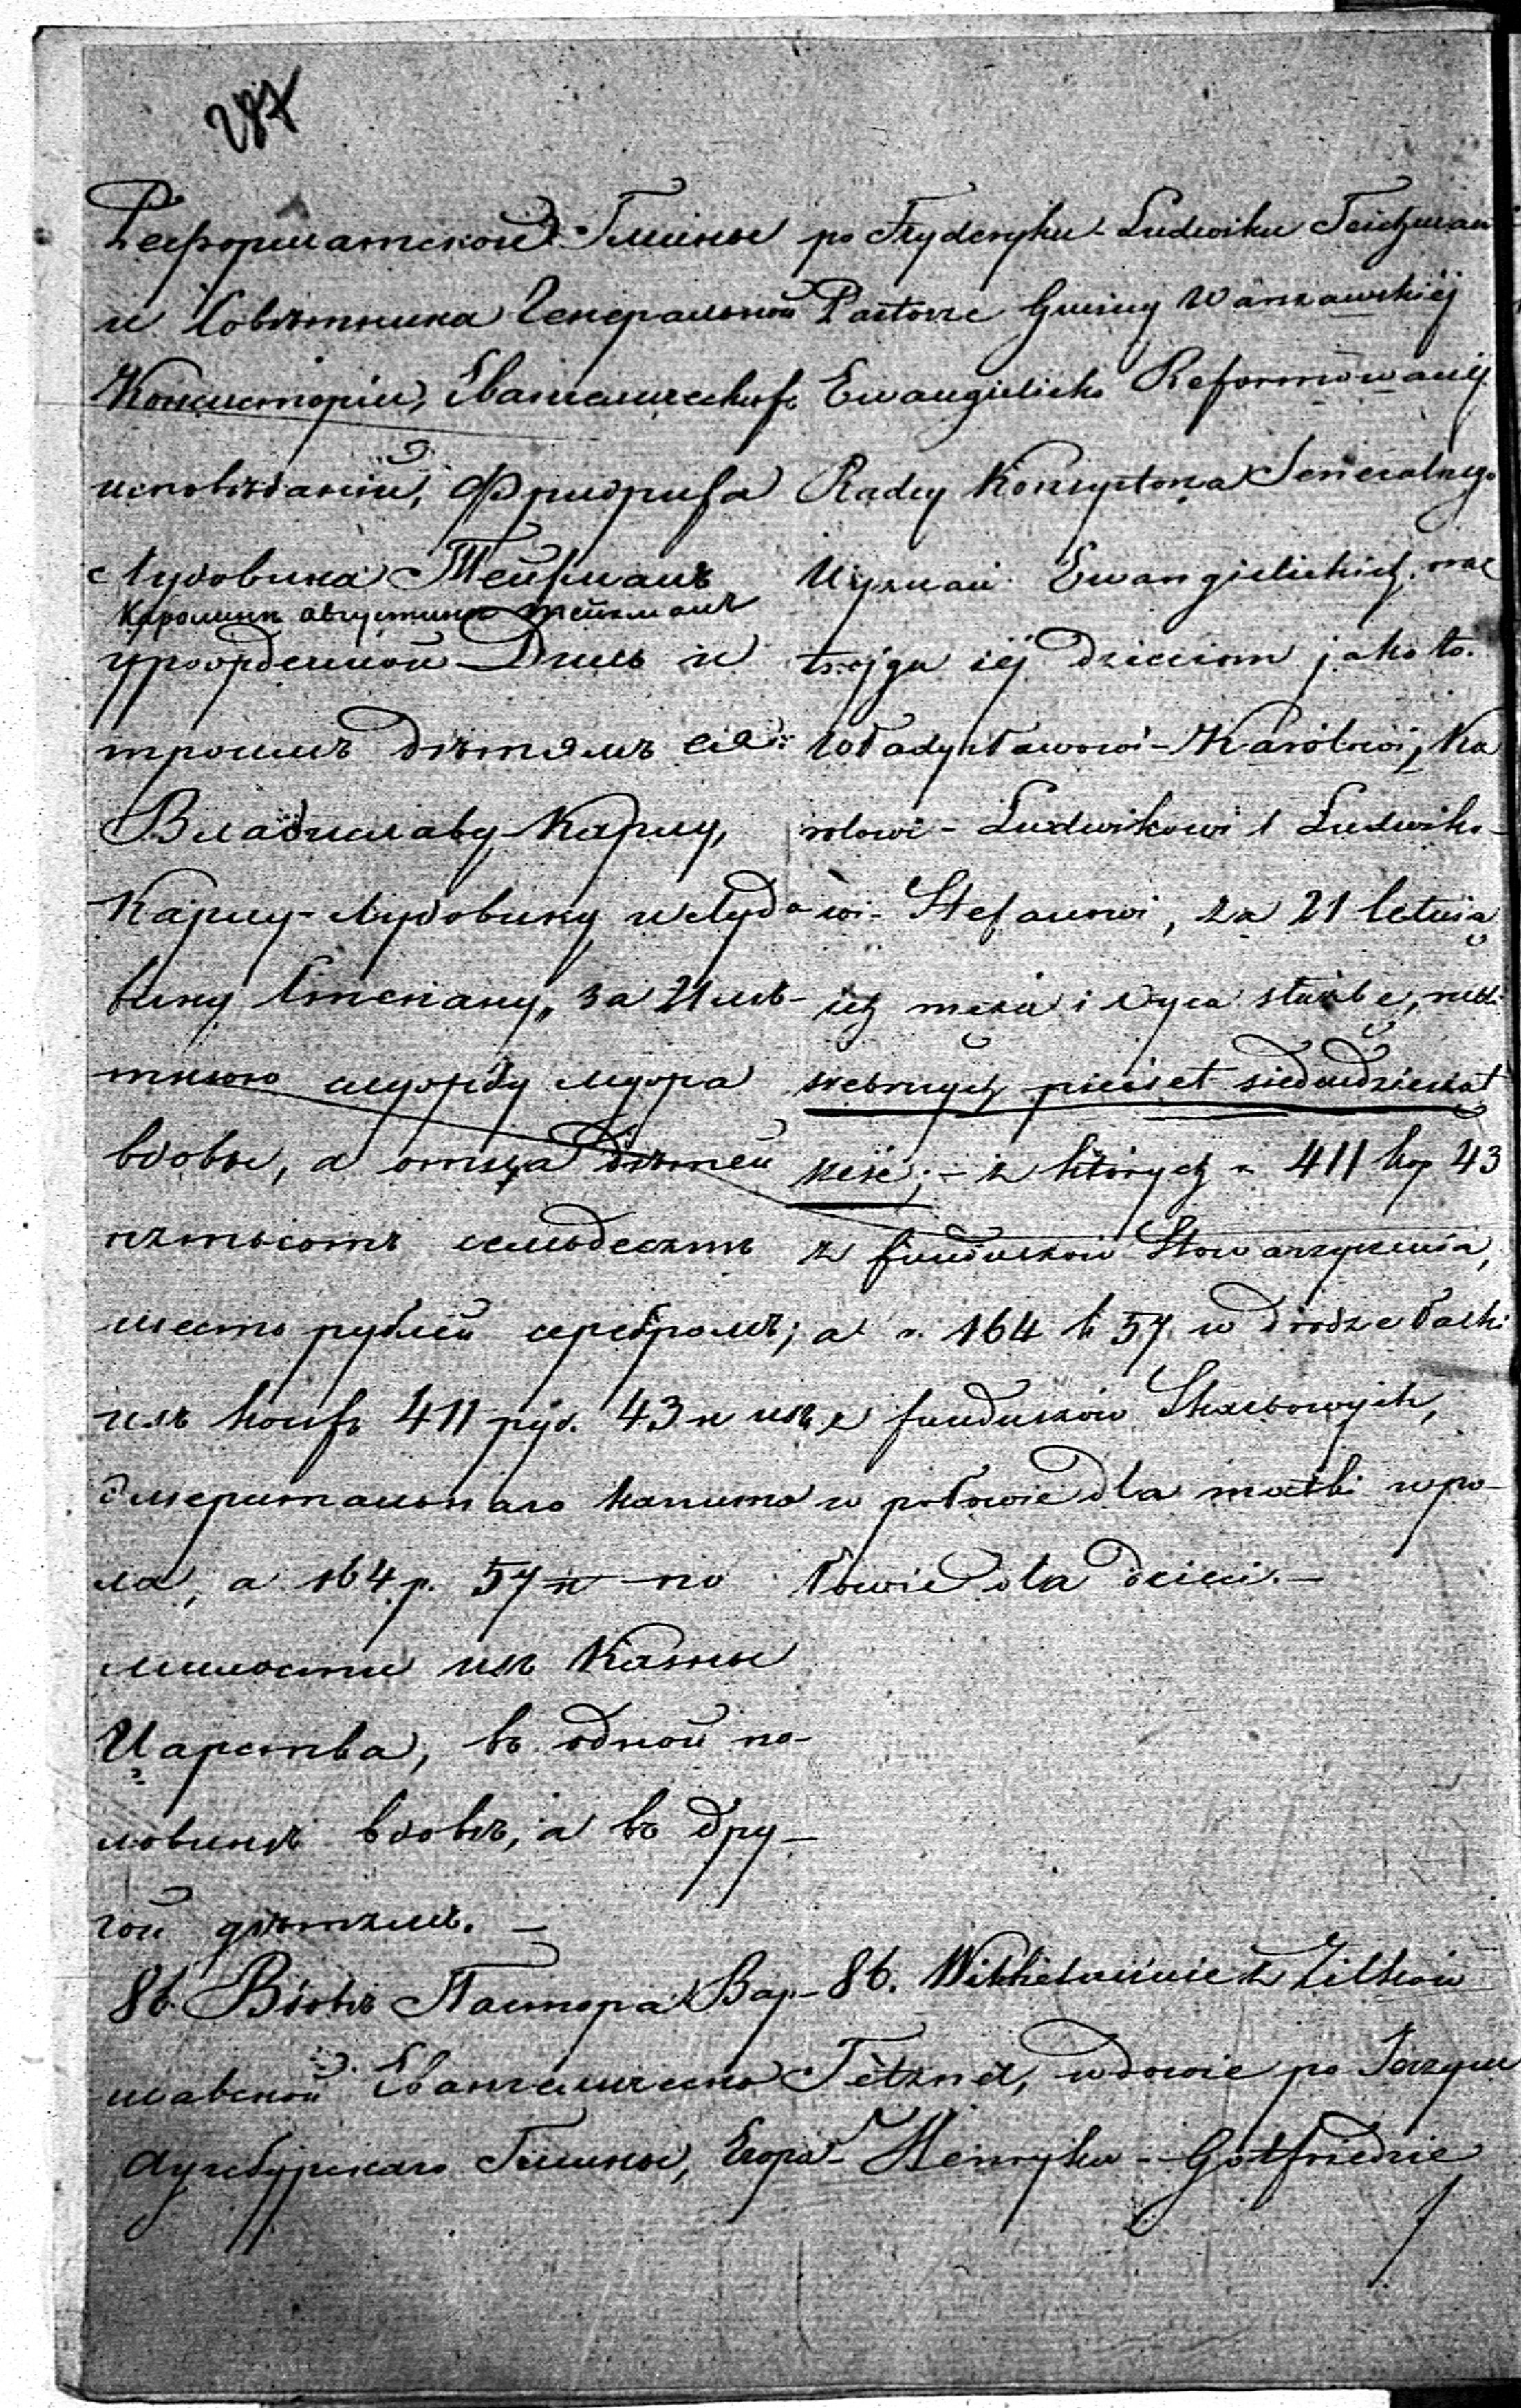 287
Реформатской Гмины
и Совѣтника Генеральной
Консисторіи, Евангелическихъ
исповѣданій, Фридриха
Лудовика Тейхманъ
Каролинѣ Августинѣ Тейхманъ
урожденной Диль и
троимъ дѣтямъ ея:
Владиславу-Карлу,
Карлу-Лудовику и Лудо-
вику Стефану, за 21 лѣ-
тнюю службу мужа
вдовы, а отца дѣтей
пятьсотъ семьдесятъ
шесть рублей серебромъ;
изъ коихъ 411 руб. 43 к изъ
Эмеритальнаго капита
ла, а 164 р. 57 к по
милости изъ Казны
Царства, въ одной по-
ловинѣ вдовѣ, а въ дру-
гой дѣтямъ. —
86. Вдовѣ Пастора Вар-
шавской Евангелическо
Аугсбургскаго Гмины, Егора
po Fryderyku-Ludwiku Teichmann
Pastorze Gminy Warszawskiéj
Ewangielicko Reformowanéj
Radcy Konsystorza Generalnego
Wyznań Ewangielickich, oraz
trojgu iéj dzieciom jakoto.
Władysławowi-Karolowi, Ka
rolowi-Ludwikowi i Ludwiko-
wi-Stefanowi, za 21 letnią
ich męża i ojca służbę, rubli
srebrnych pięćset siedmdziesiąt
sześć; — z których r. 411 kop 43
z funduszów Stowarzyszenia,
a r. 164 k 57 w drodze łaski
z funduszów Skarbowych,
w połowie dla matki w po-
łowie dla dzieci. —
86. Wilhelminie z Zilków
Tetzner, wdowie po Jerzym
Henryku-Gotfriedzie